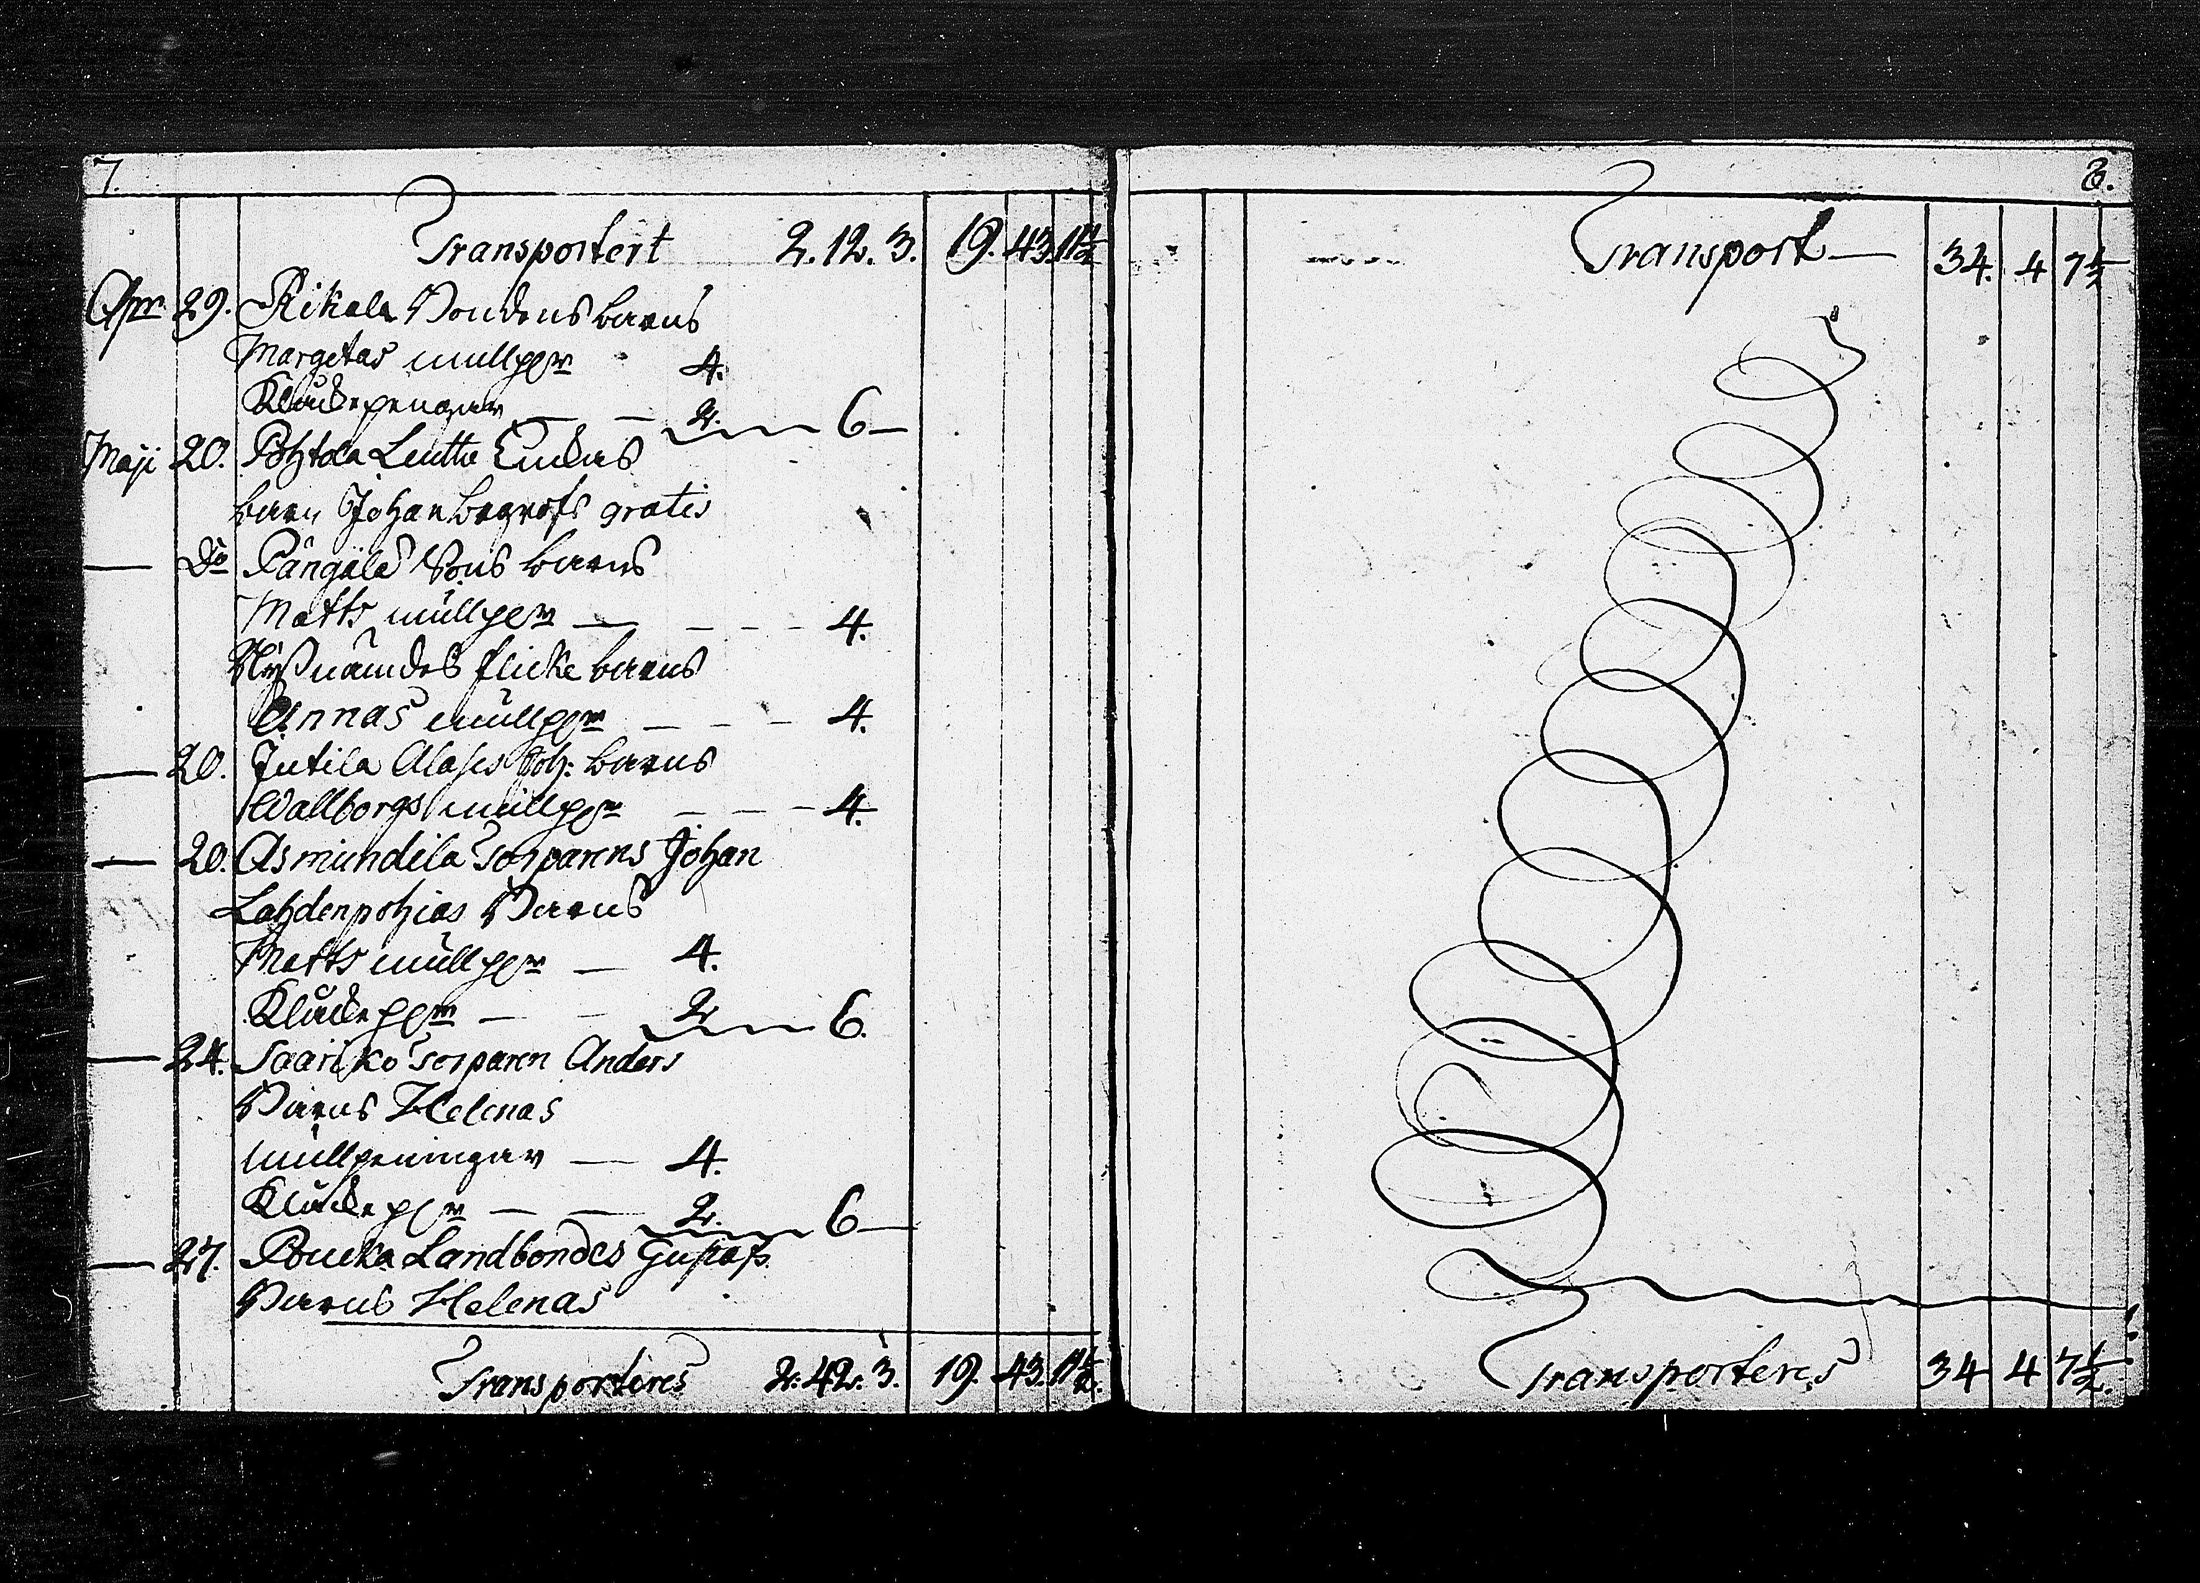 7.
Transportert 2. 12. 3. 19. 43. 11 1/2
Apr. 29. Rikala Bondens barns
Margetas mullpgr 4.
Klåckepengar — — 2. 6 —
Maji 20. Pohtola Enkas
barn Johan begrofs gratis
— Do Pångälä Sons barns
Matts mullpgr — — — — 4.
flicke barns
Annas mullpgr — — — 4.
— 20. Jutila Joh: barns
Wallborgs mullpgr — — — 4.
— 20. Asmundila Torparens Johan
Lahdenpohjas Barns
Matts mullpgr — 4.
Klåckepgr — — 2 6.
— 24. Saariko Torparen Anders
Barns Helenas
mullpeningar — 4.
Klåckepgr — — 2. 6 —
— 27. Landbondes Gustafs
Barns Helenas
Transporteres 2. 42. 3. 19. 43. 11 1/2.
8.
Transport — 34. 4 7 1/2
Transporteres 34 4 7 1/2.